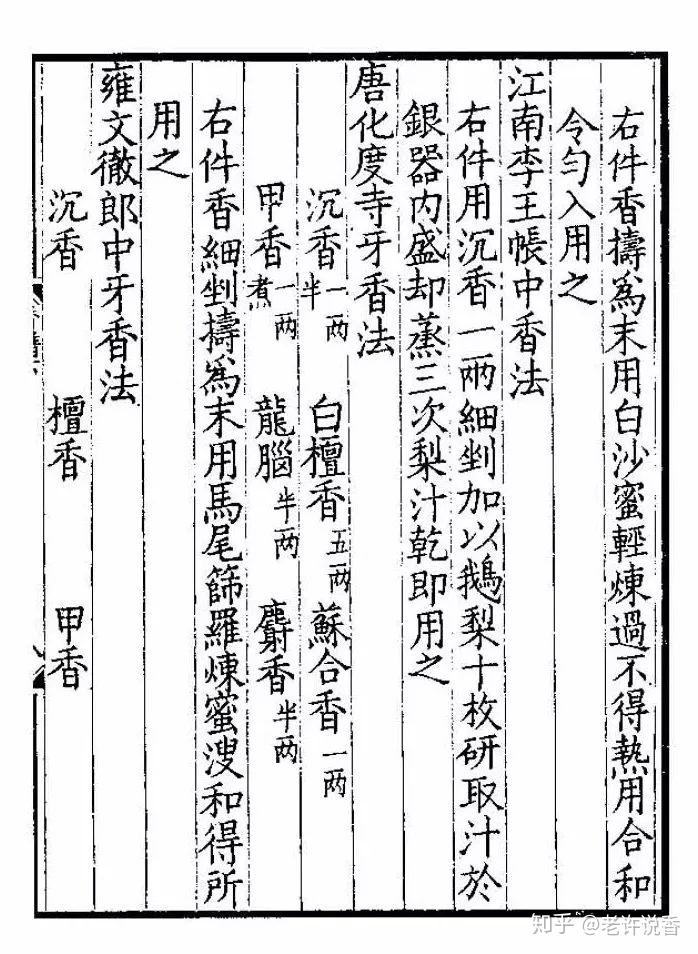 右件香擣為末用白沙蜜輕煉過不得熱用合和
令勻入用之
江南李王帳中香法
右件用沉香一兩細剉加以鵝梨十枚研取汁於
銀器內盛却蒸三次梨汁乾即用之
唐化度寺牙香法
沉香一两半 白檀香五两 蘇合香一两
甲香一两煮 龍腦半两 麝香半两
右件香細剉擣為末用馬尾篩羅煉蜜溲和得所
用之
雍文徹郎中牙香法
沉香 檀香 甲香
知乎 @老许说香